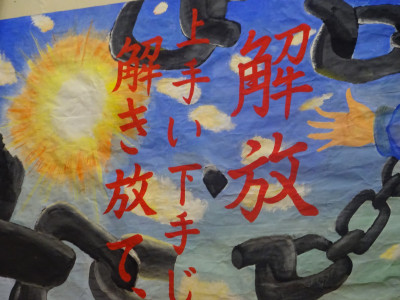 解放
上手い下手じ
解き放て、